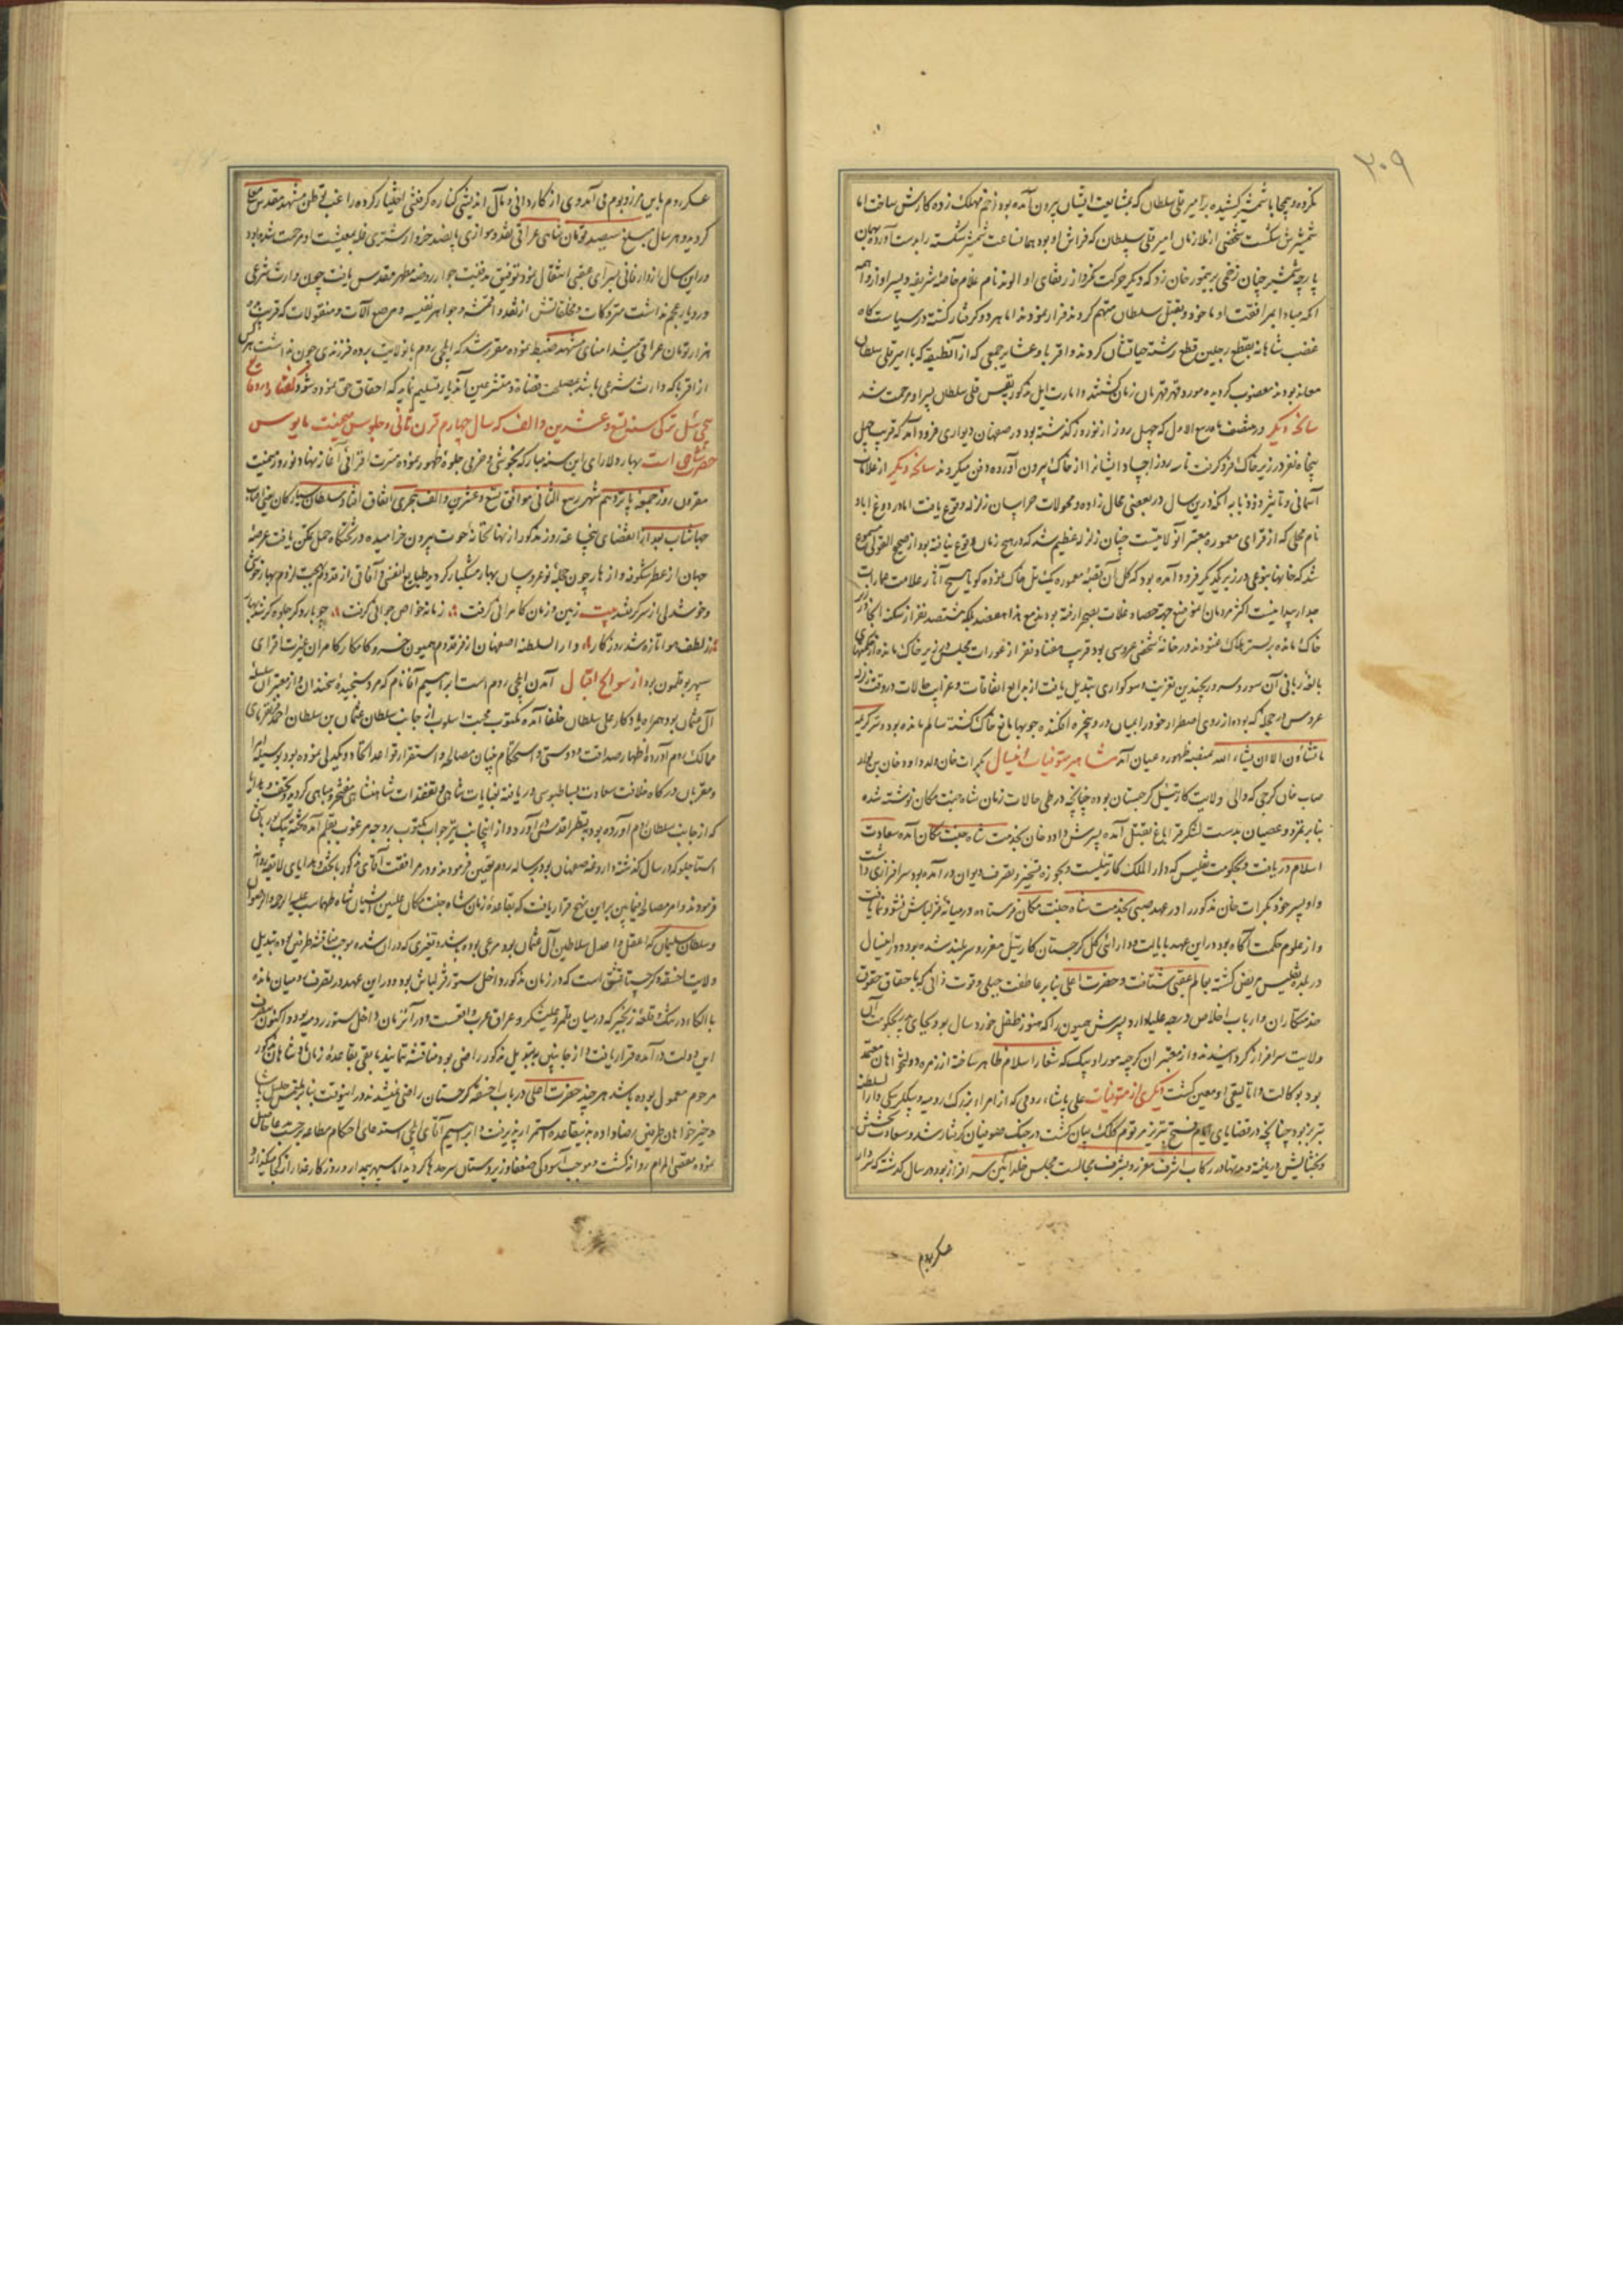 ۲۰۹
نکرده و بیجابا شمشیر کشیده بر امیر قلی سلطان که بمشایعت ایشان بیرون آمده بود زخم مهلک زده کارش ساخت اما
شمشیرش شکست شخصی از ملازمان امیر قلی سلطان که فراش او بود همان ساعت شمشیر شکسته را بدست آورده بهمان
پارچه شمشیر چنان زخمی بر تیمور خان زد که دیگر حرکت نکرد از رفقای او الوند نام غلام خاصه شریفه و پسر او از واهمه
آنکه مبادا بمرافقت او ماخوذ و بقتل سلطان متهم گردند فرار نمودند اما هر دو گرفتار گشته در سیاست گاه
غضب شاهانه بقطع رجلین قطع رشته حیاتشان کردند و اقربا و عشایر جمعی که از آن طبقه که با امیر قلی سلطان
معاند بودند مغضوب گردیده مورد قهر قهرمان زمان گشتند و امارت ایل مذکور بقیس قلی سلطان پسر او مرحمت شد
سانحه دیگر در منتصف ماه ربیع الاول که چهل روز از نوروز گذشته بود در صفهان دیواری فرود آمد که قریب چهل
پنجاه نفر در زیر خاک فرو گرفت تا سه روز اجساد ایشانرا از خاک بیرون آورده دفن میکردند سانحه دیگر از علامات
آسمانی و تاثیر ذو ذنابه آنکه درین سال در بعضی محال زاوه و محولات خراسان زلزله وقوع یافت اما در دوغ اباد
نام محلی که از قرای معموره معتبر آن ولایتست چنان زلزله عظیم شد که در هیچ زمان وقوع نیافته بود از صحیح القولی مسموع
شد که خانها بنوعی در زیر یکدیگر فرود آمده بود که کل آن قصبه معموره یک تل خاک نموده گویا هیچ آثار علامت عمارات
جدار پیدا نیست اکثر مردمان آن موضع بجهة حصاد غلات بصحرا رفته بودند مع هذا هفتصد بلکه هشتصد نفر از سکنه آنجا در زیر
خاک مانده بر بستر هلاک غنودند در خانه شخصی عروسی بود قریب هفتاد نفر از عورات مجلس در زیر خاک مانده از حکمتهای
بالغه ربانی آن سور و سرور بچندین تعزیت و سوکواری تبدیل یافت از بدایع اتفاقات و غرایب حالات در وقت زلزله
عروس در حجله که بوده از روی اضطرار خود را بمیان در و پنجره افکنده چوبها مانع خاک گشته سالم مانده بود و سر کریمه
ما تشاؤن الا ان یشاء الله بمنصه ظهور و عیان آمد مشاهیر متوفیات این سال بکرات خان ولد داود خان بن لهراسب
صاب خان گرجی که والی ولایت کارتیل گرجستان بوده چنانچه در طی حالات زمان شاه جنت مکان نوشته شده
بنابر تمرد و عصیان بدست لشکر قراباغ بقتل آمده پسرش داود خان بخدمت شاه جنت مکان آمده سعادت
اسلام دریافت و بحکومت تفلیس که دار الملک کارتیلست و بحوزه تسخیر و تصرف دیوان در آمده بود سرافرازی داشت
و او پسر خود بکرات خان مذکور را در عهد صبی بخدمت شاه جنت مکان فرستاده در میانه قزلباش نشو و نما یافت
و از علوم حکمت آگاه بود در این عهد بایالت و دارائی کل گرجستان کارتیل مفرز و سربلند شده بود در این سال
در بلده تفلیس مریض گشته بعالم عقبی شتافت و حضرت اعلی بنابر عاطفت جبلی و مروت ذاتی که با حقاق حقوق
خدمتکاران و ارباب اخلاص درجه علیا دارد پسرش سمیون را که هنوز طفل خورد سال بود بجای پدر بحکومت آن
ولایت سرافراز گردانیدند و از معتبران گرجیه موراو بیک که شعار اسلام ظاهر ساخته از زمره دولتخواهان معتمد
بود بوکالت و اتالیقی او معین گشت دیگری از متوفیات علی پاشاء رومی که از امراء بزرگ رومیه و بیکلربیکی دار السلطنه
تبریز بود چنانچه در قضایای ایام فتح تبریز مرقوم کلک بیان گشت در جنک صوفیان گرفتار شد و سعادت بخشش
و بخشایش دریافته و مدتها در رکاب اشرف معزز و بشرف مجالست مجلس خلد آئین سرافراز بود در سال گذشته که سردار
عسکر روم
عسکر روم باین مرز و بوم می آمد وی از کاردانی و مآل اندیشی کناره گرفتنی اختیار کرده راغب توطن مشهد مقدس معلی
گردید و هر سال مبلغ سیصد تومان شاهی عراقی نقد و موازی پانصد خروار شتری غله بمعیشت او مرحمت شده بود
در این سال از دار فانی بسرای عقبی انتقال نمود توفیق مدفنیت جوار روضه مطهر مقدس یافت چون وارث شرعی
در دیار عجم نداشت متروکات و مخلفاتش از نقد و اقمشه و جواهر نفیسه و مرصع آلات و منقولات که قریب
هزار تومان عراقی میشد امنای مشهد ضبط نموده مقرر شد که ایلچی روم بان ولایت برده فرزندی چون نداشت هر کس
از اقربا که وارث شرعی باشد بمصلحت قضات و متشرعین آن دیار تسلیم نماید که احقاق حق نموده شود گفتار در وقایع
ییل ترکی سنه تسع و عشرین و الف که سال چهارم قرن ثانی و جلوس میمنت مانوس
حضرت شاهی است بهار دلارای این سنه مبارکه بخوشی و خرمی جلوه ظهور نموده مسرت افزائی آغاز نهاد نوروز میمنت
مقرون روز جمعه پانزدهم شهر ربیع الثانی موافق تسع و عشرین و الف هجری اتفاق افتاد و سلطان سیارگان یعنی آفتاب
جهانتاب بعد از انقضای پنج ساعت روز مذکور از نهانخانه حوت بیرون خرامیده در تختگاه حمل تمکن یافت عرصه
جهان از عطر شکوفه و ازهار چون حجله نو عروسان بهار مشکبار گردید طبایع انفسی و آفاقی از قدوم بهجت لزوم بهار بخوشی
و خوشدلی از سر گرفتند بیت زمین و زمان کامرانی گرفت زمانه خواص جوانی گرفت چو بار دگر جلوه گر شد بهار
ز لطف هوا تازه شد روزگار و دار السلطنه اصفهان از فر قدوم همیون خسرو کامکار کامران غیرت افزای
سپهر بوقلمون بود از سوانح اقبال آمدن ایلچی روم است ابراهیم آقا نام که مرد سنجیده سخندان و از معتبران سلسله
آل عثمان بود همراه یادگار علی سلطان خلفا آمده مکتوب محبت اسلوب از جانب سلطان عثمان بن سلطان احمد فرمانفرمای
ممالک روم آورده اظهار صداقت و دوستی و استحکام بنیان مصالحه و استقرار قواعد اتحاد و یکدلی نموده بود بوسیله امرا
و مقربان درگاه خلافت سعادت بساطبوسی دریافته بعنایات شاهی و تفقدات شاهنشاهی مفتخر و مباهی گردید و تحف و هدایا
که از جانب سلطان روم آورده بود بنظر اقدس در آورد و از اینجانب نیز جواب مکتوب بر وجه مرغوب بقلم آمده تخته بیک یوزباشی
استاجلو که در سال گذشته داروغه صفهان بود برسالت روم تعیین فرمودند و در مرافقت آقای مذکور با تحف و هدایای لایقه روانه
فرمودند و امر مصالحه فیمابین بر این نهج قرار یافت که بقاعده زمان شاه جنت مکان علیین آشیان شاه طهماسب علیه الرحمه و الرضوان
و سلطان سلیمان که اعقل و اعدل سلاطین آل عثمان بود مرعی بوده باشد و تغیری که در آن شده موجب مناقشه طرفین بوده تبدیل
ولایت اخسقه گرجستان مشق است که در زمان مذکور داخل سنور قزلباش بود و در این عهد در تصرف رومیان مانده
با الکاء درتنک و قلعه زنجیر که در میان قلمرو علیشکر و عراق عرب واقعست و در آن زمان داخل سنور رومیه بود و اکنون بتصرف
این دولت در آمده قرار یافت و از جانبین بتبدیل مذکور راضی بوده مناقشه ننمایند باقی بقاعده زمان شاهان مذکور
مرحوم معمول بوده باشد هر چند حضرت اعلی در باب اخسقه گرجستان راضی نمیشدند در این وقت بنابر ملتمس خلیل پاشا
و خیرخواهان طرفین رضا داده بدین قاعده استمرار پذیرفت و ابراهیم آقای ایلچی استدعای احکام مطاعه حسب الحاصل
نموده مقضی المرام روانه گشت و موجب آسودگی ضعفا و زیردستان سرحدها گردید اما سپهر غدار و روزگار